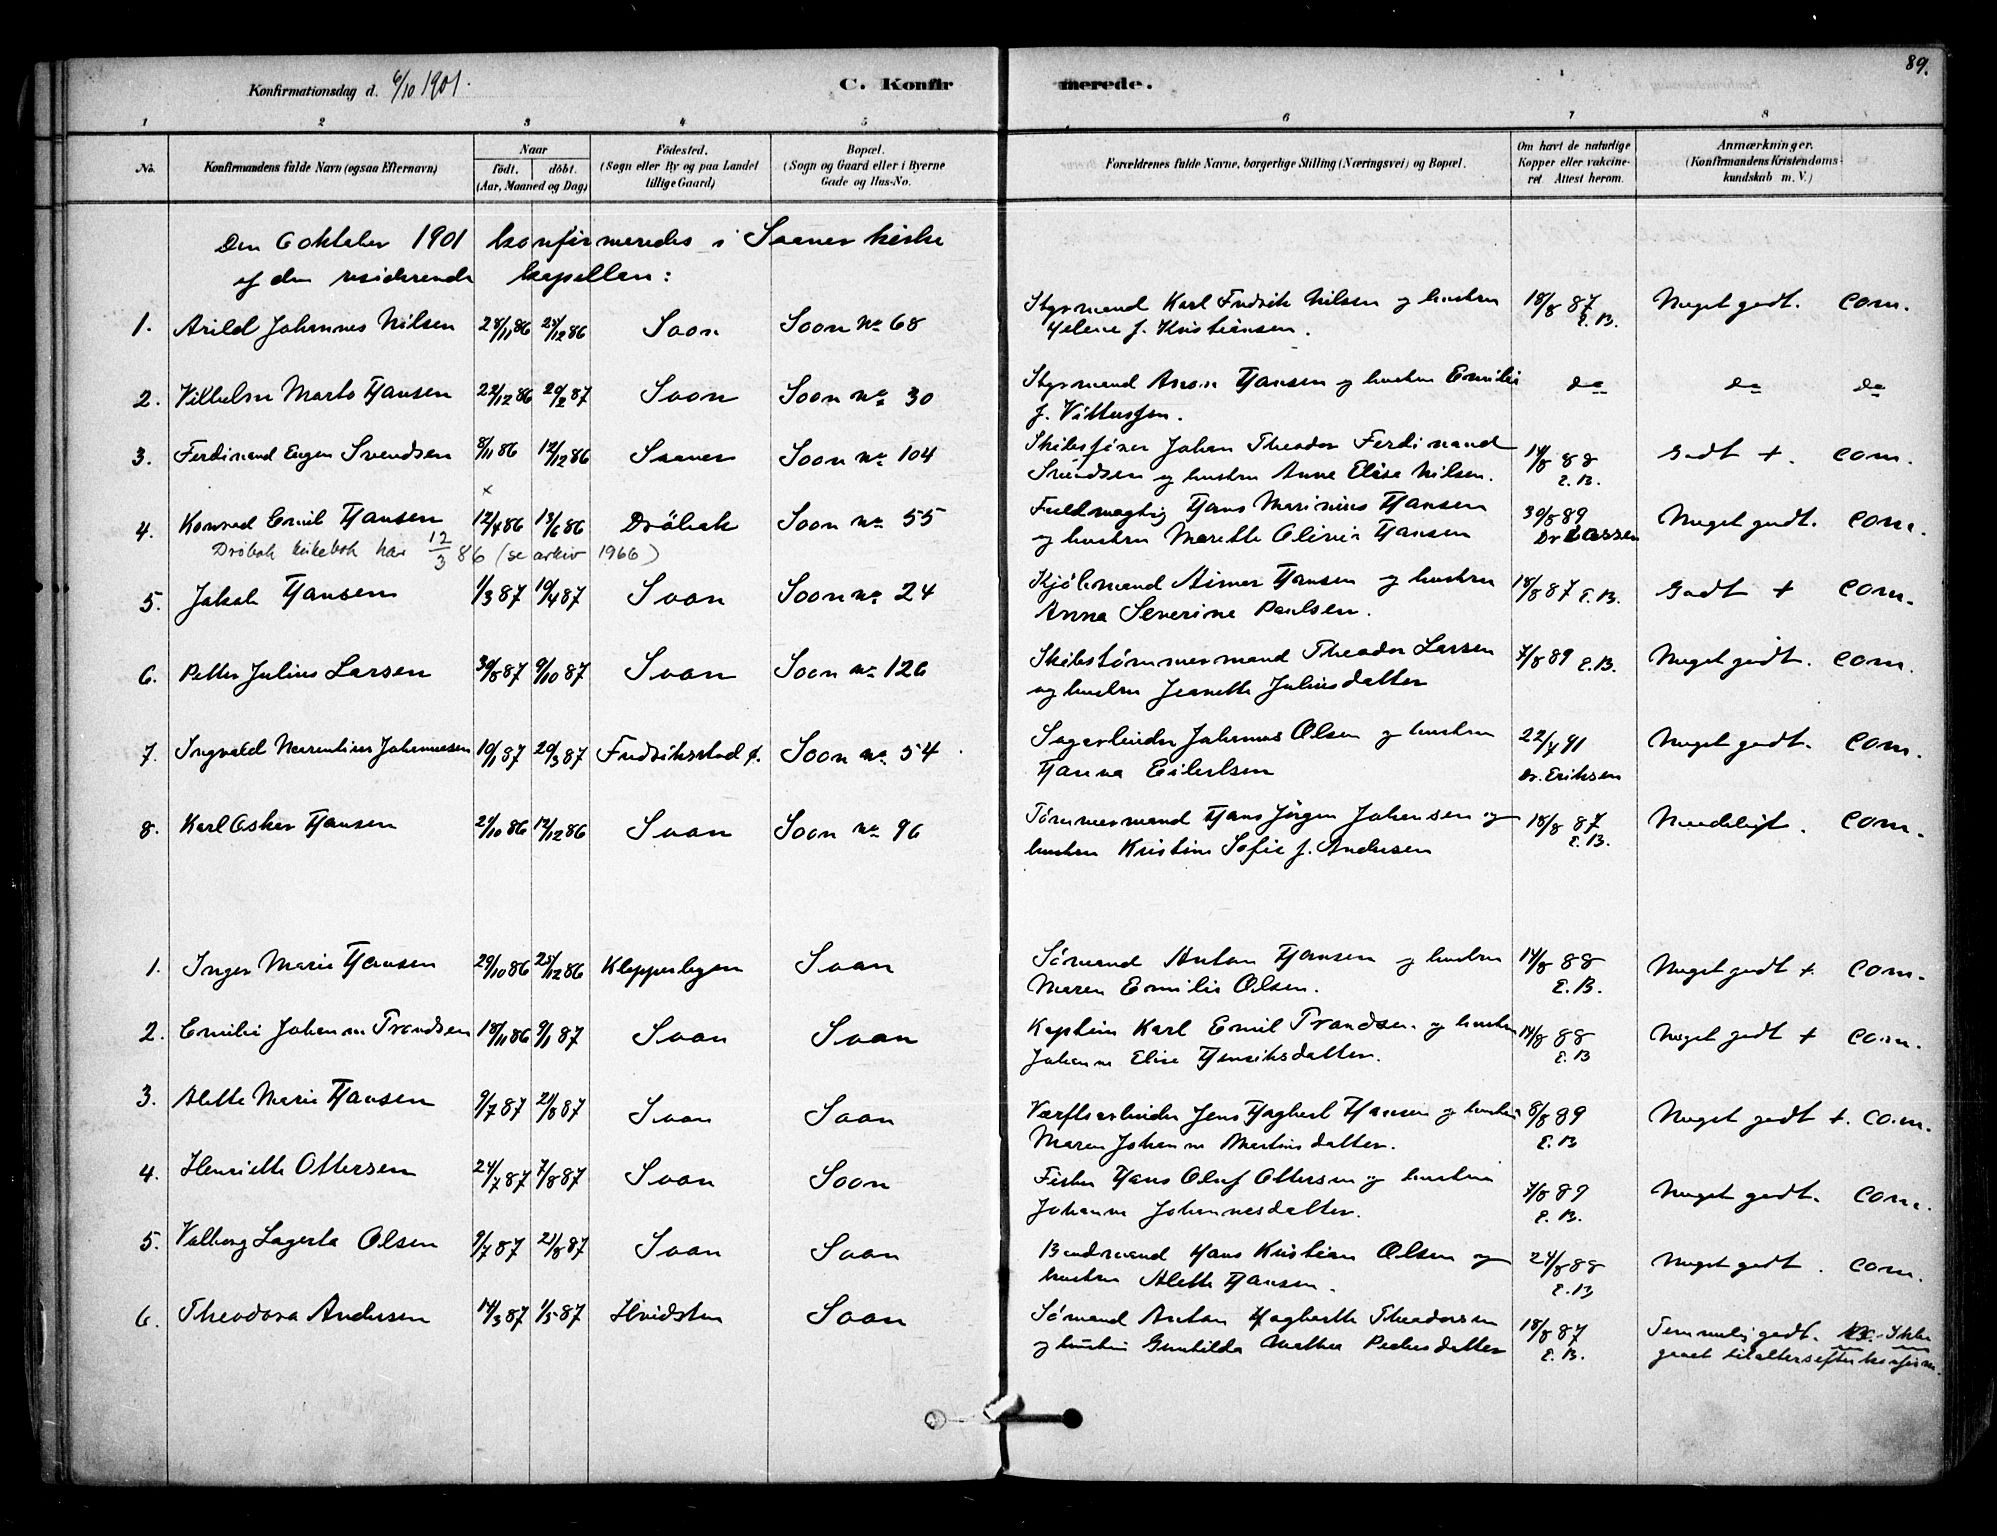 89.
Konfirmationsdag d. 6/10 1901.
C. Konfirmerede.
1 2 3 4 5 6 7 8
No.
Konfirmandens fulde Navn (ogsaa Efternavn)
Naar
født. døbt.
(Aar, Maaned og Dag)
Fødested.
(Sogn eller By og paa Landet
tillige Gaard)
Bopæl.
(Sogn og Gaard eller i Byerne
Gade og Hus-No.
Forældrenes fulde Navne, borgerlige Stilling (Næringsvei) og Bopæl.
Om havt de naturlige
Kopper eller vakcine-
ret Attest herom.
Anmærkninger.
(Konfirmandens Kristendoms-
kundskab m. V.)
Den 6 oktober 1901 konfirmeredes i Saaner kirke
af den residerende kapellan:
1. Arild Johannes Nilsen 28/11 86 24/12 86 Soon Soon No 68 Styrmand Karl Fredrik Nilsen og hustru 18/8 87 Meget godt. Com.
Helene f. Kristiansen. E.B.
2. Vilhelm Marto Hansen 22/12 86 20/2 87 Soon Soon No 30 Styrmand Anon Hansen og hustru Emilie do do do
3. Ferdinand Eugen Svendsen 8/11 86 12/12 86 Saaner Soon No 104 Skibsfører Johan Theodor Ferdinand 14/8 88 Godt +. Com.
Svendsen og hustru Anne Elise Nilsen. E.B.
x
4. Konrad Emil Hansen 12/4 86 13/6 86 Drøbak Soon No 55 Fuldmægtig Hans Marinius Hansen 30/8 89 Meget godt. Com.
og hustru Marethe Olivia Hansen Dr Lassen
Drøbak kirkebok har 12/3 86 (se arkiv 1966)
5. Jakob Hansen 1/3 87 10/4 87 Soon Soon No 24 Kjølmand Aimar Hansen og hustru 18/8 87 E.B. Godt + Com.
Anna Severine Paulsen.
6. Petter Julius Larsen 30/8 87 9/10 87 Soon Soon No 126 Skibstømmermand Theodor Larsen 7/8 89 E.B. Meget godt. Com.
og hustru Jeanette Juliusdatter
7. Ingvald Narentius Johannesen 10/1 87 20/3 87 Fredriksstad Ø. Soon No 54 Sagarbeider Johannes Olsen og hustru 22/4 91 Meget godt. Com.
Hanna Eilertsen Dr. Eriksen
8. Karl Oskar Hansen 21/10 86 12/12 86 Soon Soon No 96 Tømmermand Hans Jørgen Johansen og 18/8 87 Maadeligt. Com.
hustru Kristine Sofie f. Andersen E.B.
1. Inger Marie Hansen 29/10 86 25/12 86 Kloppen Soon Sømand Anton Hansen og hustru 14/8 88 Meget godt + Com.
Maren Emilie Olsen. E.B.
2. Emilie Johanne Trondsen 18/11 86 9/1 87 Soon Soon Kaptein Karl Emil Trondsen og hustru 14/8 88 Meget godt + Com.
Johanne Elise Henriksdatter. E.B
3. Alette Marie Hansen 9/7 87 21/8 87 Soon Soon Værftsarbeider Jens Hagbert Hansen og hustru 8/8 89 Meget godt +. Com.
Maren Johanne Martinsdatter. E.B
4. Henriette Ottersen 24/7 87 7/8 87 Soon Soon Fisker Hans Oluf Ottersen og hustru 7/8 89 Meget godt. Com.
Johanne Johannesdatter. E.B.
5. Valborg Lagerta Olsen 9/7 87 21/8 87 Soon Soon Baadmand Hans Kristian Olsen og 24/8 88 Meget godt. Com.
hustru Alette Hansen. E.B
6. Theodora Andersen 14/3 87 1/5 87 Hvidsten Soon Sømand Anton Hagbarth Theodorsen 18/8 87 Temmelig godt. NB. Ikke
og hustru Gunhilda Mathea Pedersdatter E.B. gaaet til alters efter konfirm.